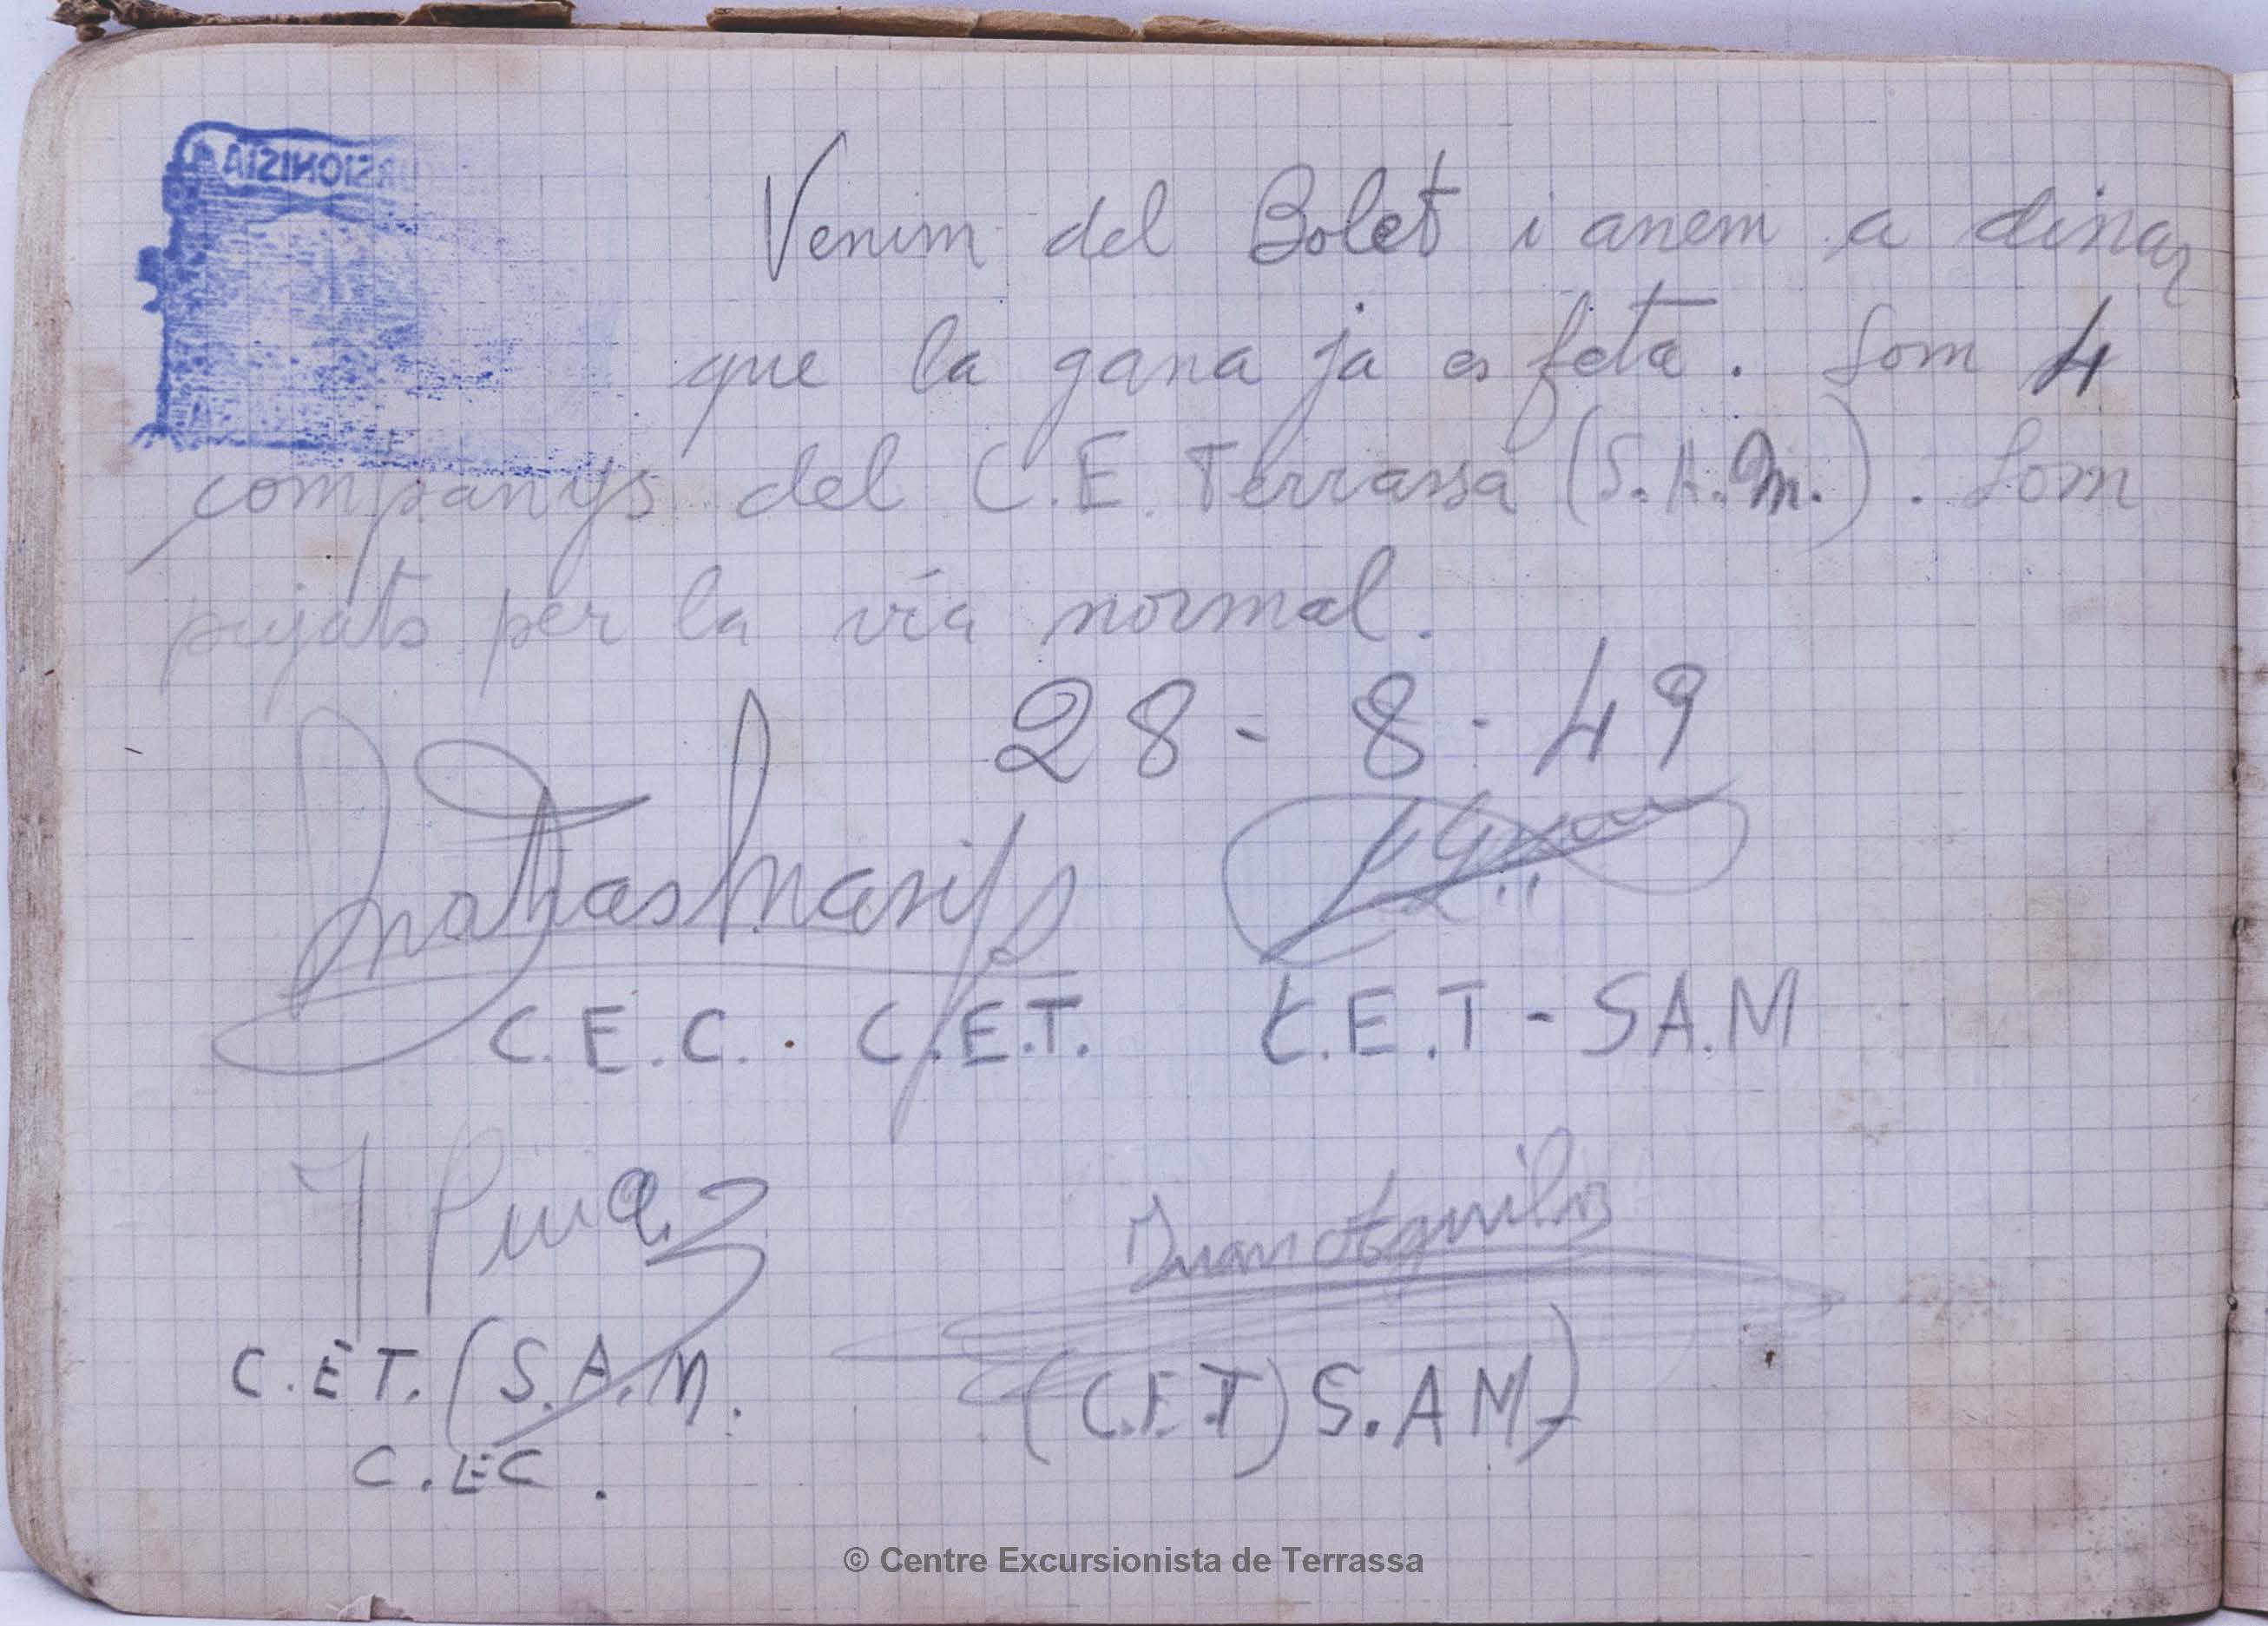 Venim del Bolet i anem a dinar
que la gana ja es feta. Som 4
companys del C.E. Terrassa (S.A.M.). Som
pujats per la vía normal.
28-8-49
C.E.C. C.E.T.
C.E.T-SA.M
Juan Aguilar
C.ET. (S.A.M.
(C.E.T) S.AM)
C.EC.
© Centre Excursionista de Terrassa